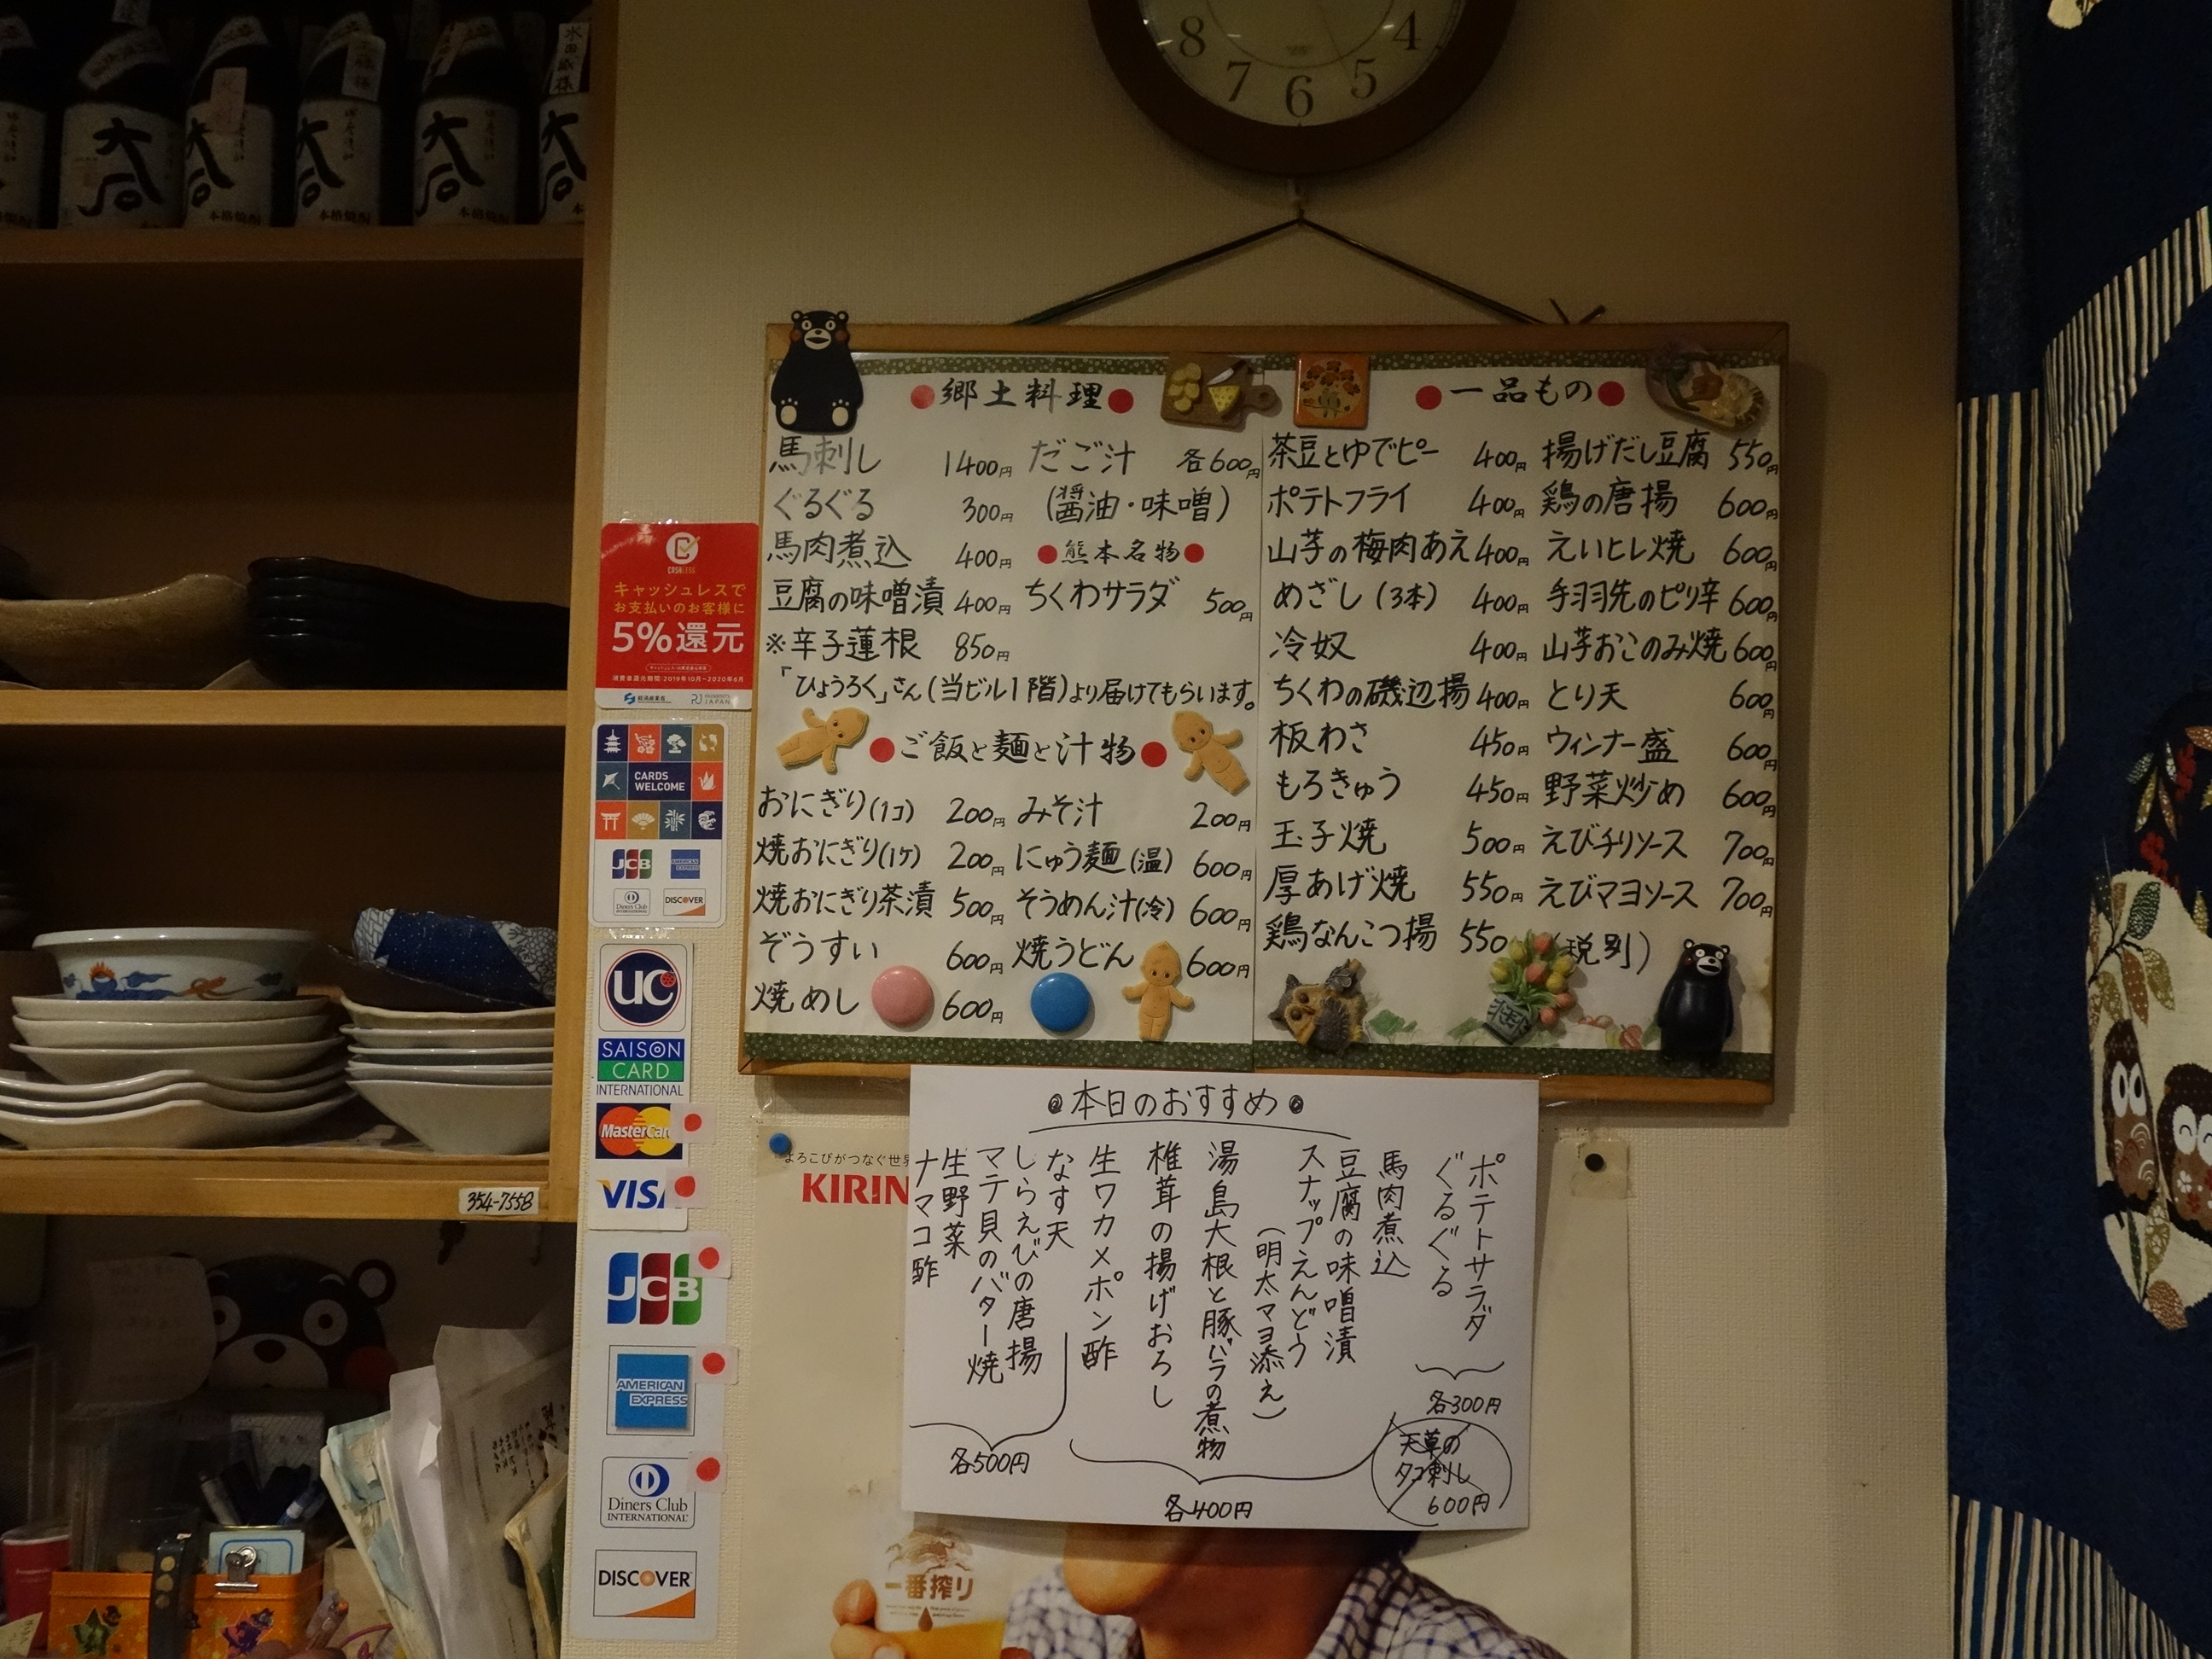 8 7 6 5 4
水田蔵様
本格焼酎
本格焼酎
本格焼酎
本格焼酎
CASHLESS
キャッシュレスで
お支払いのお客様に
5%還元
消費者還元期間:2019年10月~2020年6月
経済産業省
CARDS
WELCOME
JCB
AMERICAN EXPRESS
Diners Club
INTERNATIONAL
DISCOVER
UC
SAISON
CARD
INTERNATIONAL
MasterCard
VISA
JCB
AMERICAN
EXPRESS
Diners Club
INTERNATIONAL
DISCOVER
354-7558
●郷土料理●
馬刺し 1400円
ぐるぐる 300円
馬肉煮込 400円
豆腐の味噌漬 400円
※辛子蓮根 850円
「ひょうろく」さん(当ビル1階)より届けてもらいます。
だご汁 各600円
(醤油・味噌)
●熊本名物●
ちくわサラダ 500円
●ご飯と麺と汁物●
おにぎり(1コ) 200円
焼おにぎり(1ケ) 200円
焼おにぎり茶漬 500円
ぞうすい 600円
焼めし 600円
みそ汁 200円
にゅう麺(温) 600円
そうめん汁(冷) 600円
焼うどん 600円
●一品もの●
茶豆とゆでピー 400円
ポテトフライ 400円
山芋の梅肉あえ 400円
めざし(3本) 400円
冷奴 400円
ちくわの磯辺揚 400円
板わさ 450円
もろきゅう 450円
玉子焼 500円
厚あげ焼 550円
鶏なんこつ揚 550
揚げだし豆腐 550円
鶏の唐揚 600円
えいヒレ焼 600円
手羽先のピリ辛 600円
山芋おこのみ焼 600円
とり天 600円
ウィンナー盛 600円
野菜炒め 600円
えびチリソース 700円
えびマヨソース 700円
(税別)
本日のおすすめ
ポテトサラダ
ぐるぐる
各300円
馬肉煮込
豆腐の味噌漬
スナップえんどう
(明太マヨ添え)
湯島大根と豚バラの煮物
椎茸の揚げおろし
生ワカメポン酢
各400円
なす天
しらえびの唐揚
マテ貝のバター焼
生野菜
ナマコ酢
各500円
天草の
タコ刺し
600円
よろこびがつなぐ世界
KIRIN
一番搾り